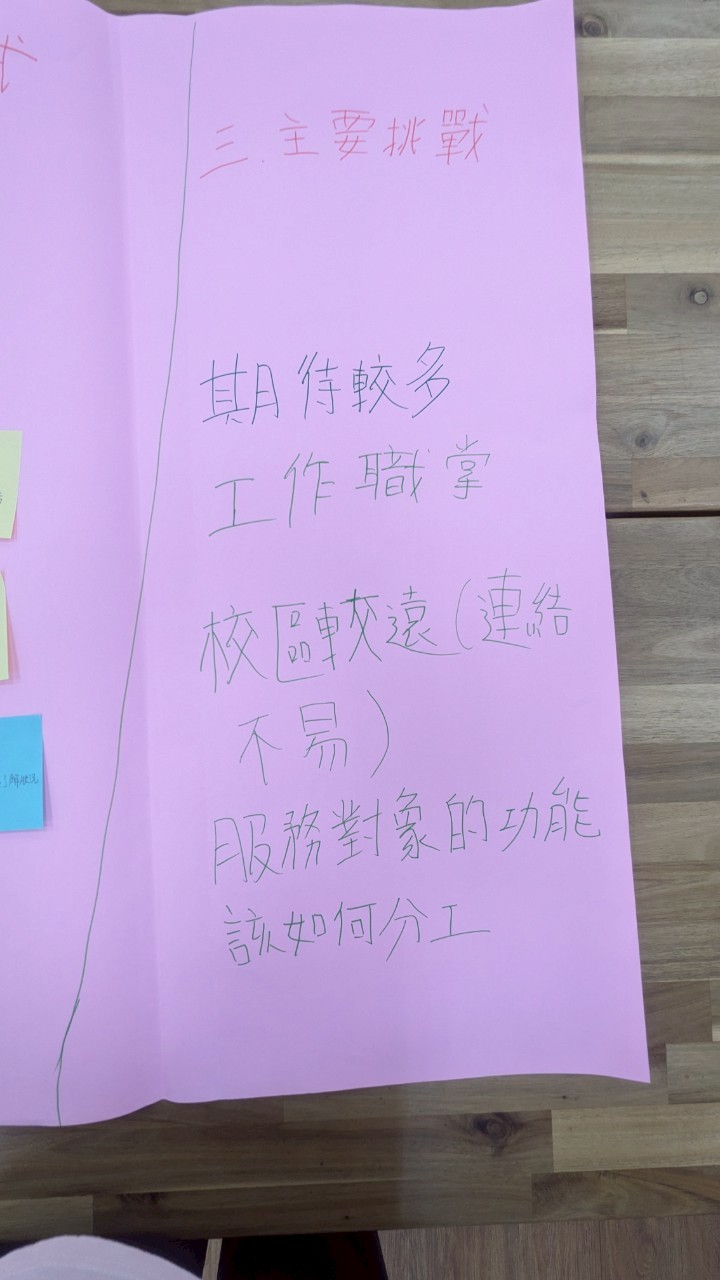 三.主要挑戰
期待較多
工作職掌
校區較遠(連結
不易)
服務對象的功能
該如何分工
解狀況